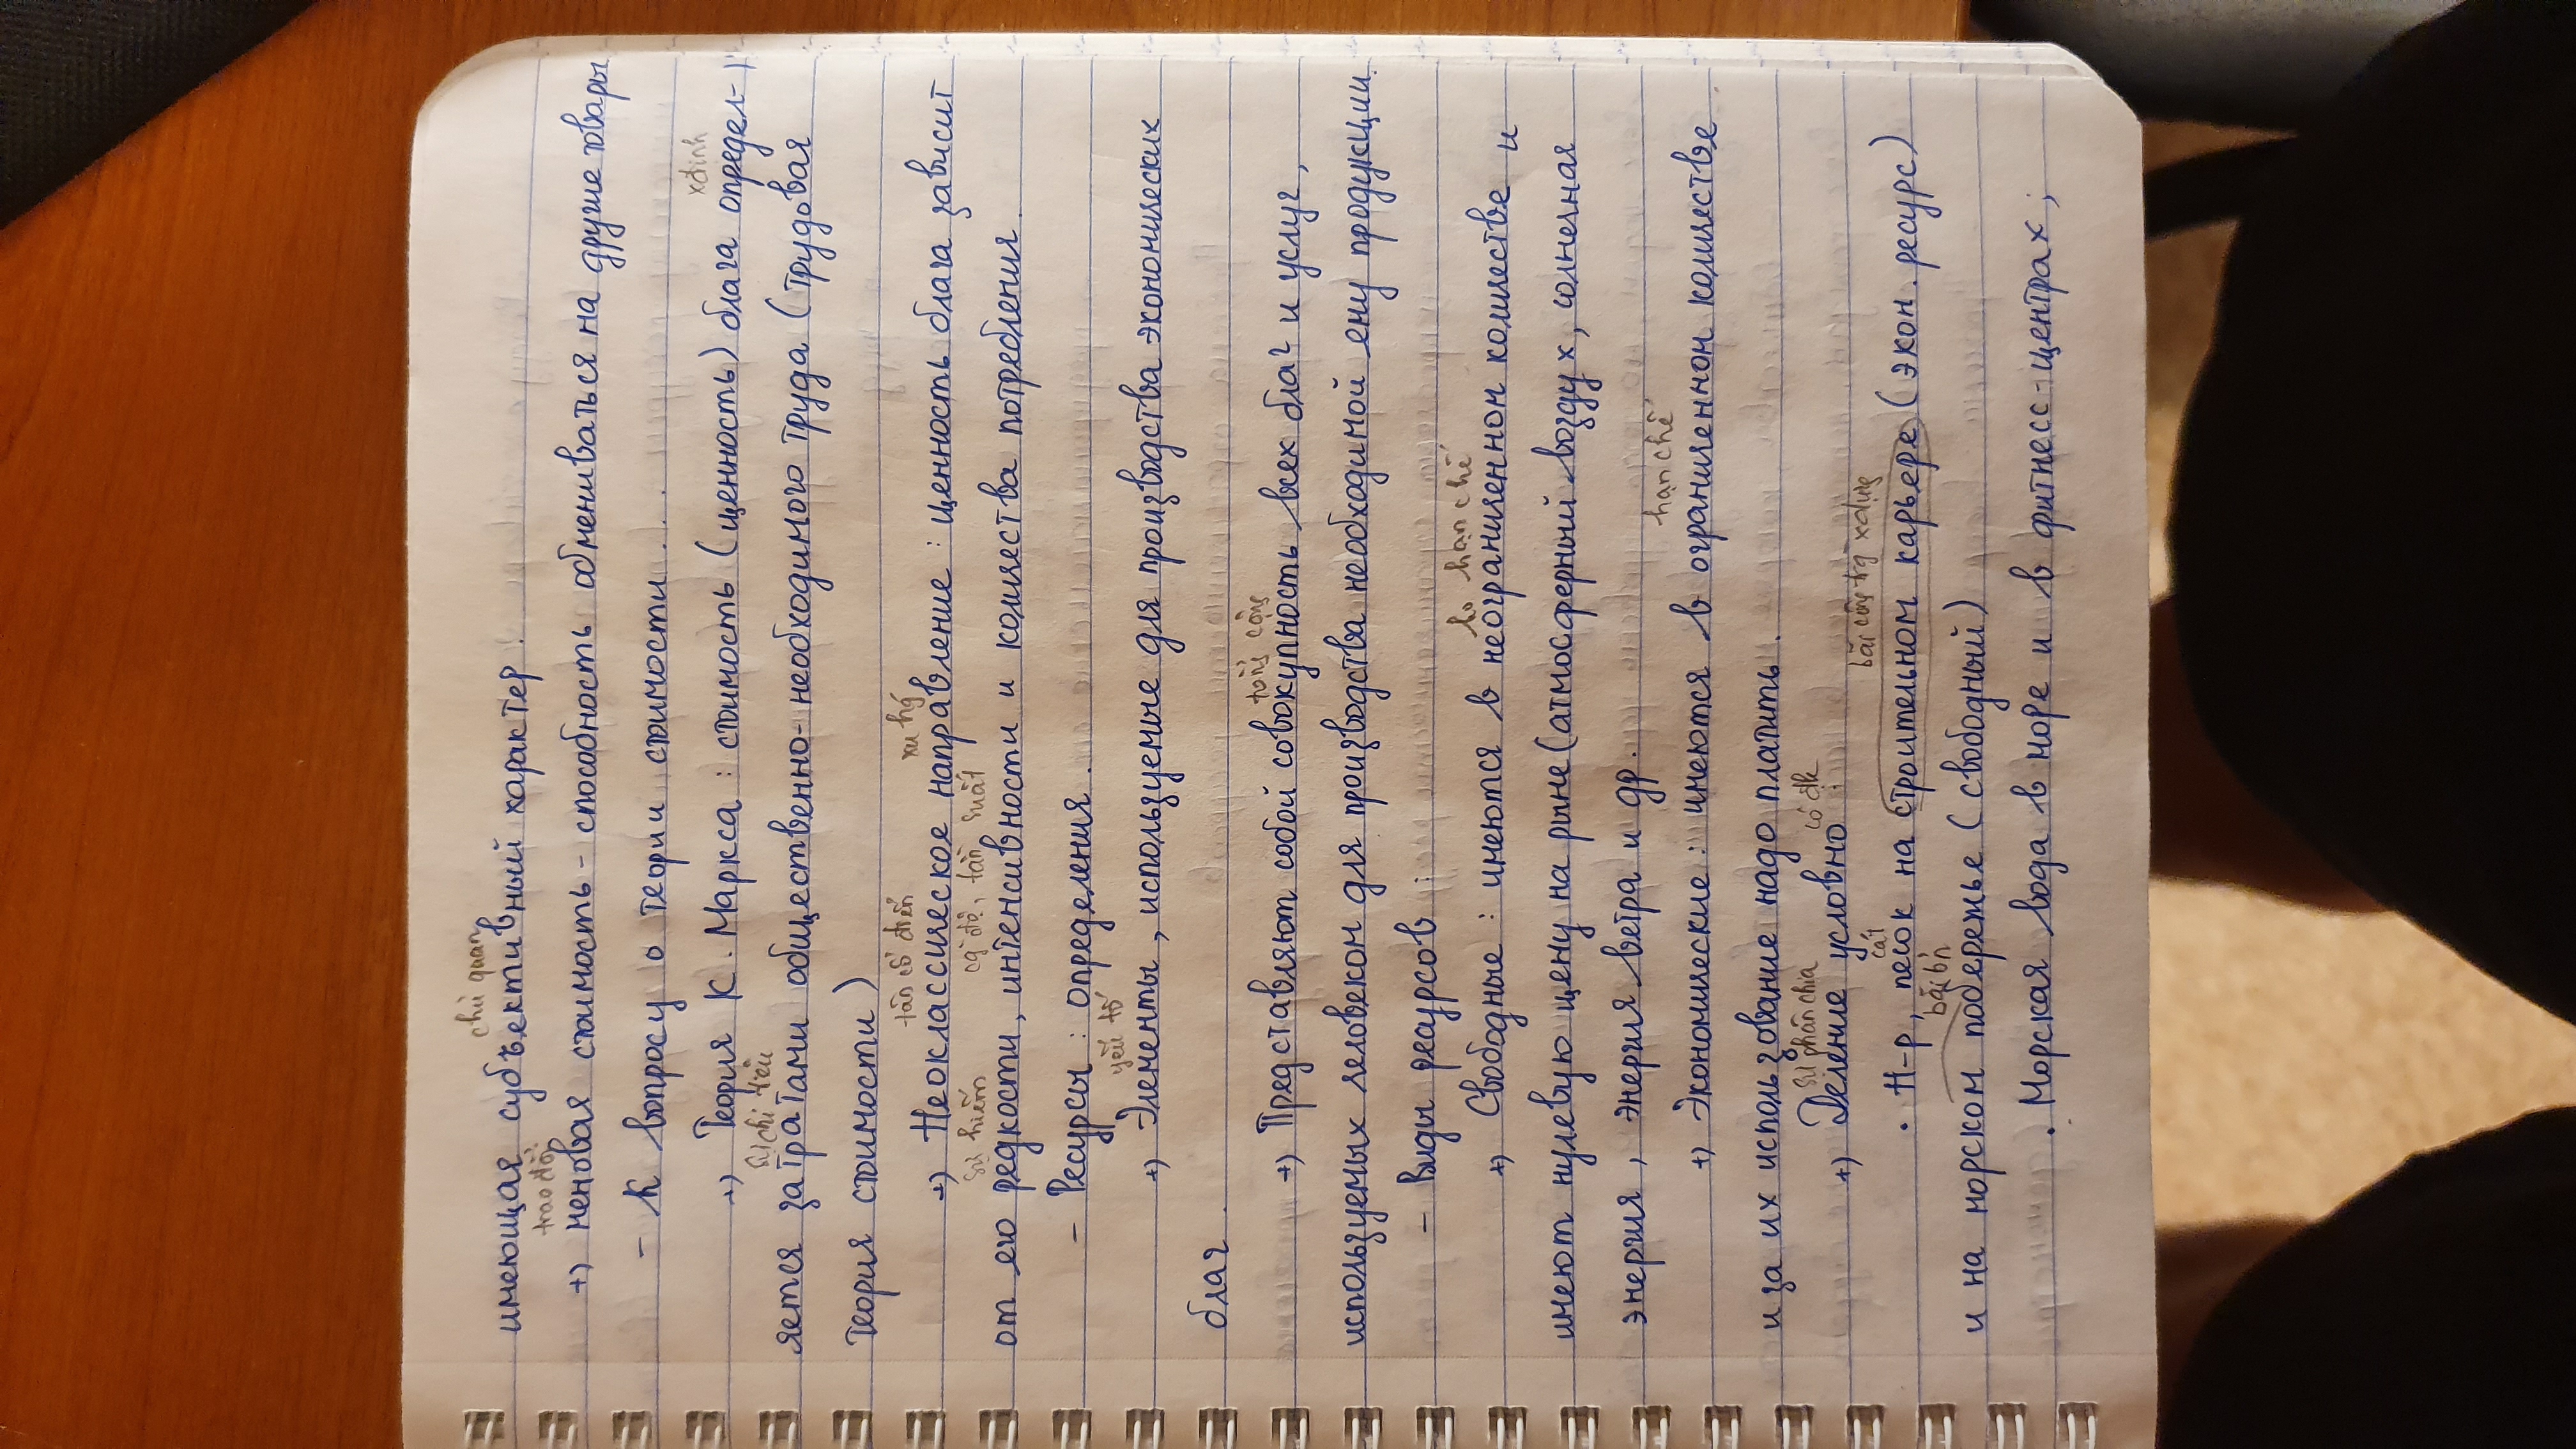 chủ quan
имеющая субъективный характер.
trao đổi
+) меновая стоимость – способность обмениваться на другие товары
– К вопросу о теории стоимости...
xđịnh
+) Теория К. Маркса : стоимость (ценность) блага определ-
sự chi tiêu
яется затратами общественно-необходимого труда (трудовая
теория стоимости)
tân cổ điển xu hg
+) Неоклассическое направление : ценность блага зависит
sự hiếm cg độ, tần suất
от его редкости, интенсивности и количества потребления.
– Ресурсы : определения.
yếu tố
+) Элементы, используемые для производства экономических
благ.
tổng cộng
+) Представляют собой совокупность всех благ и услуг,
используемых человеком для производства необходимой ему продукции.
– Виды ресурсов :
ko hạn chế
+) Свободные : имеются в неограниченном количестве и
имеют нулевую цену на рыне (атмосферный воздух, солнечная
энергия, энергия ветра и др.
hạn chế
+) Экономические : имеются в ограниченном количестве
и за их использование надо платить.
sự phân chia có đk
+) Деление условно :
cát bãi công trg xdựng
. Н-р, песок на строительном карьере (экон. ресурс)
bãi bỉ
и на морском побережье (свободный)
. Морская вода в море и в фитнесс-центрах;